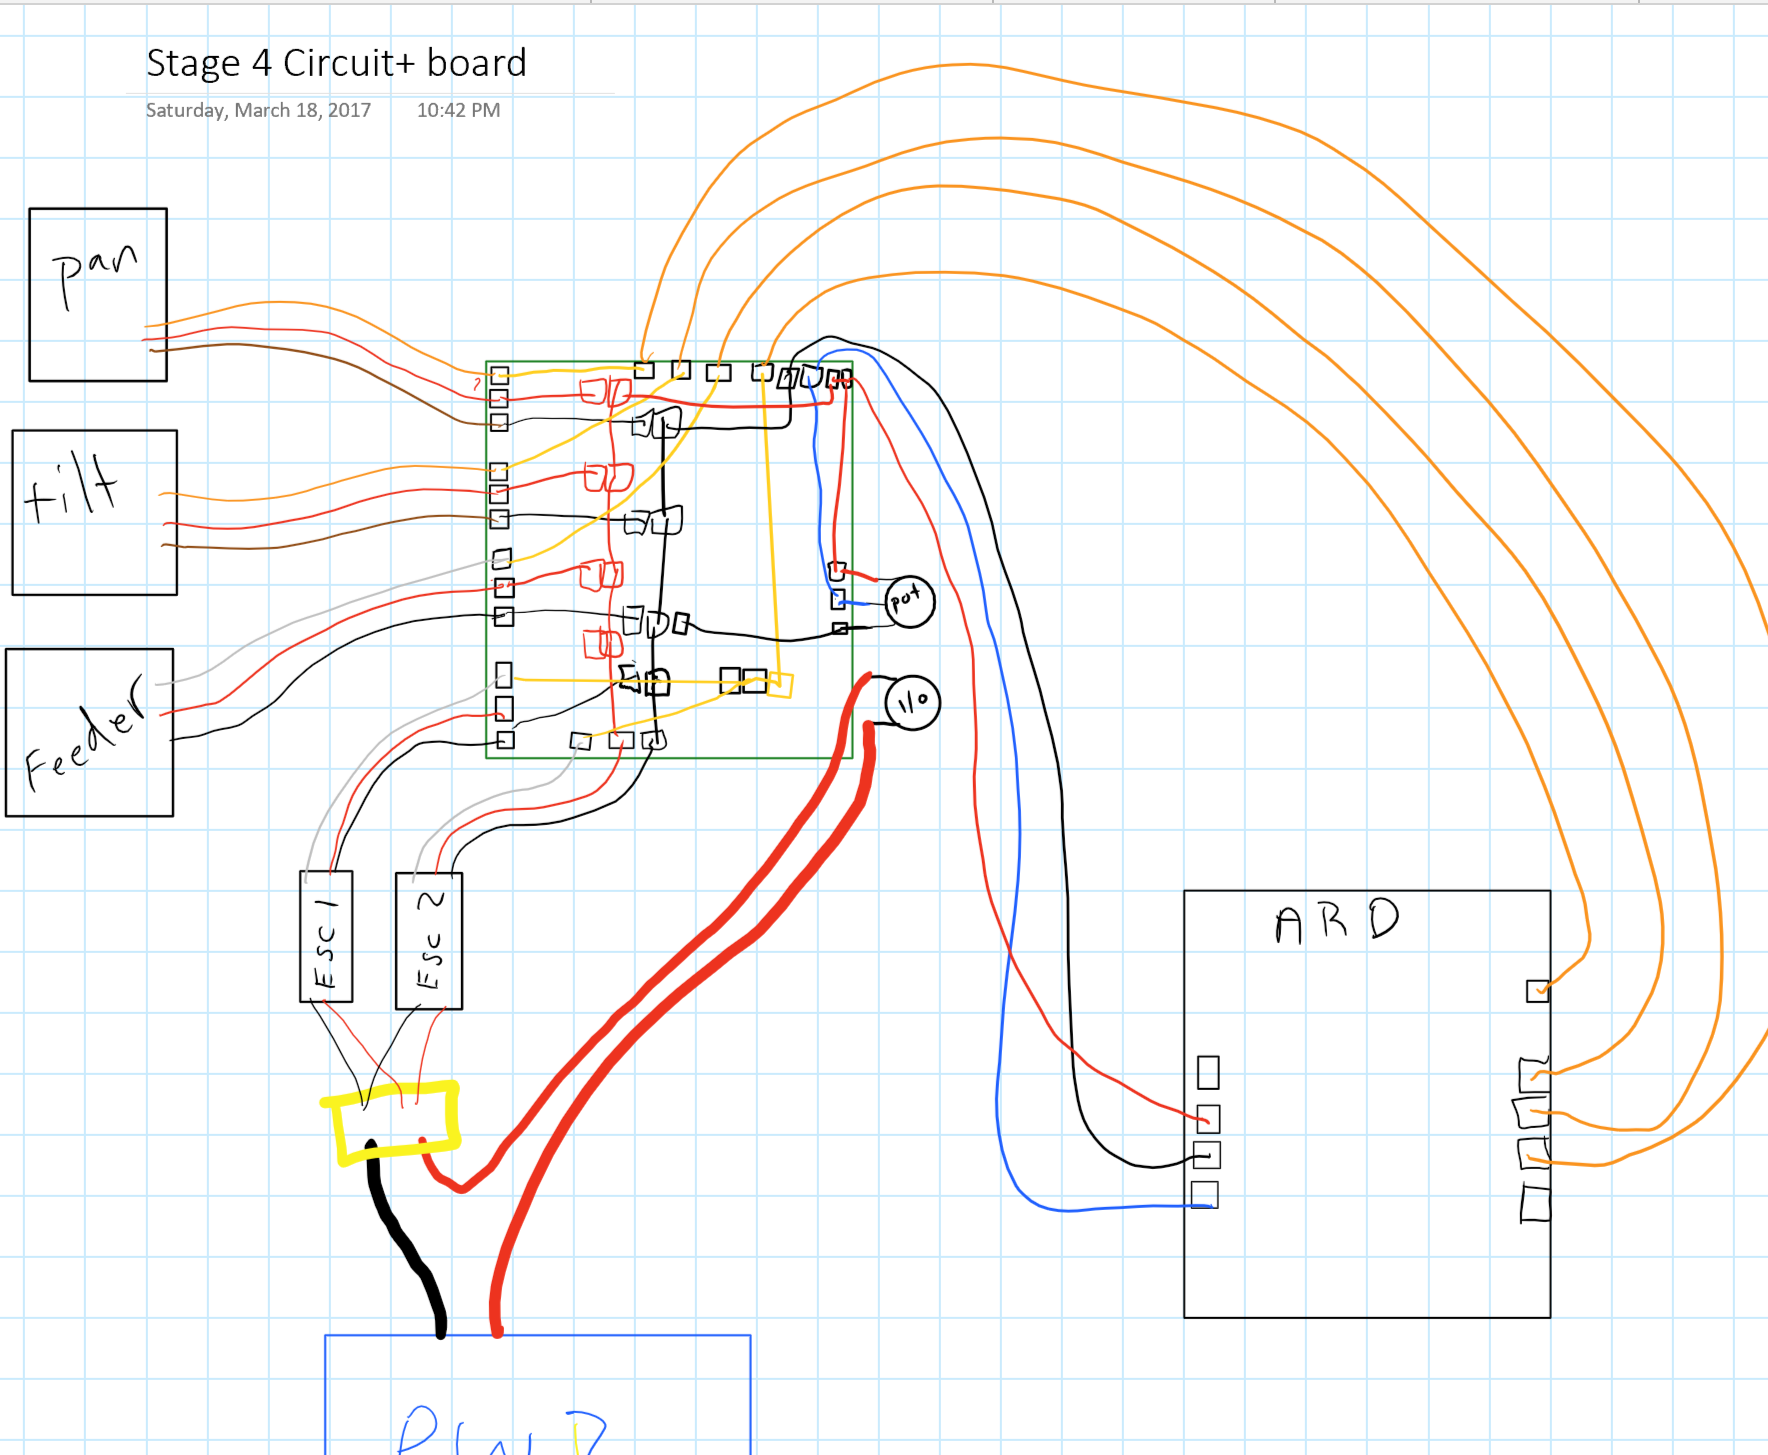 Stage 4 Circuit+ board
Saturday, March 18, 2017 10:42 PM
pan
?
tilt
pot
Feeder
1/0
ESC 1
ESC 2
ARD